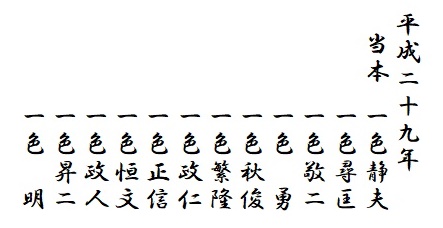 平成二十九年
当本 一色静夫
一色尋匡
一色敬二
一色 勇
一色秋俊
一色繁隆
一色政仁
一色正信
一色恒文
一色政人
一色昇二
一色 明